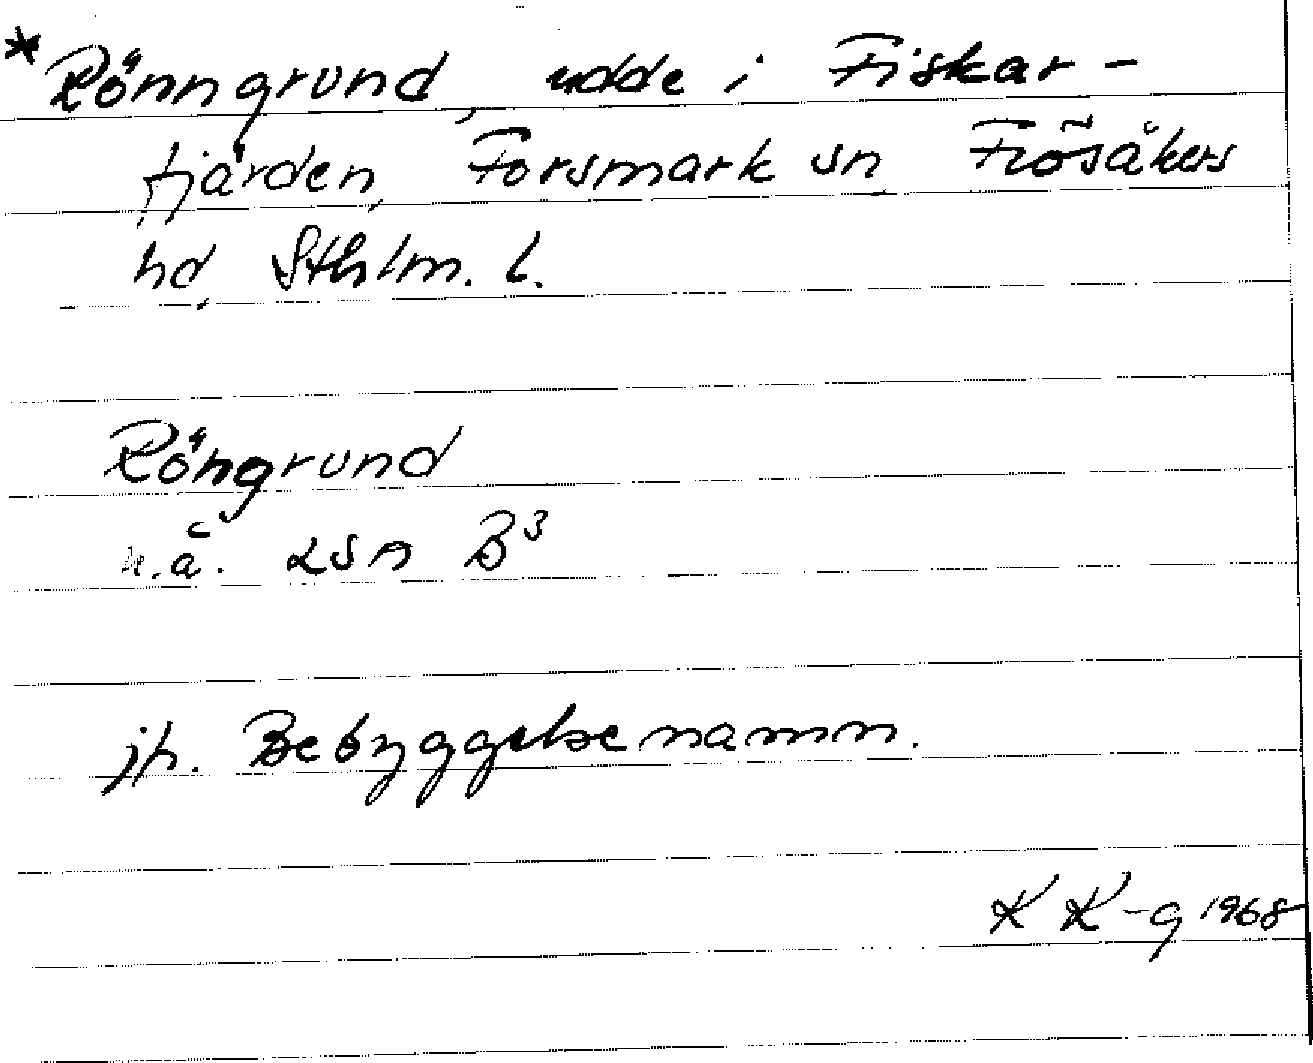 * Rönngrund, udde i Fiskar-
fjärden, Forsmark sn, Frösåkers
hd, Sthlm. l.
Röngrund
u.å. LSA B³
jfr. Bebyggelsenamn.
K K-g 1968